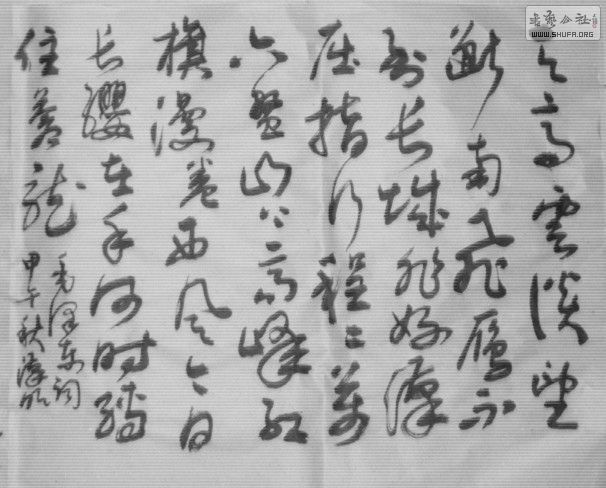 天高雲淡望
断南飛雁不
到长城非好漢
屈指行程二萬
六盤山上高峰红
旗漫卷西风今日
长缨在手何时缚
住蒼龍
毛泽东词
甲午秋
書藝公社
WWW.SHUFA.ORG